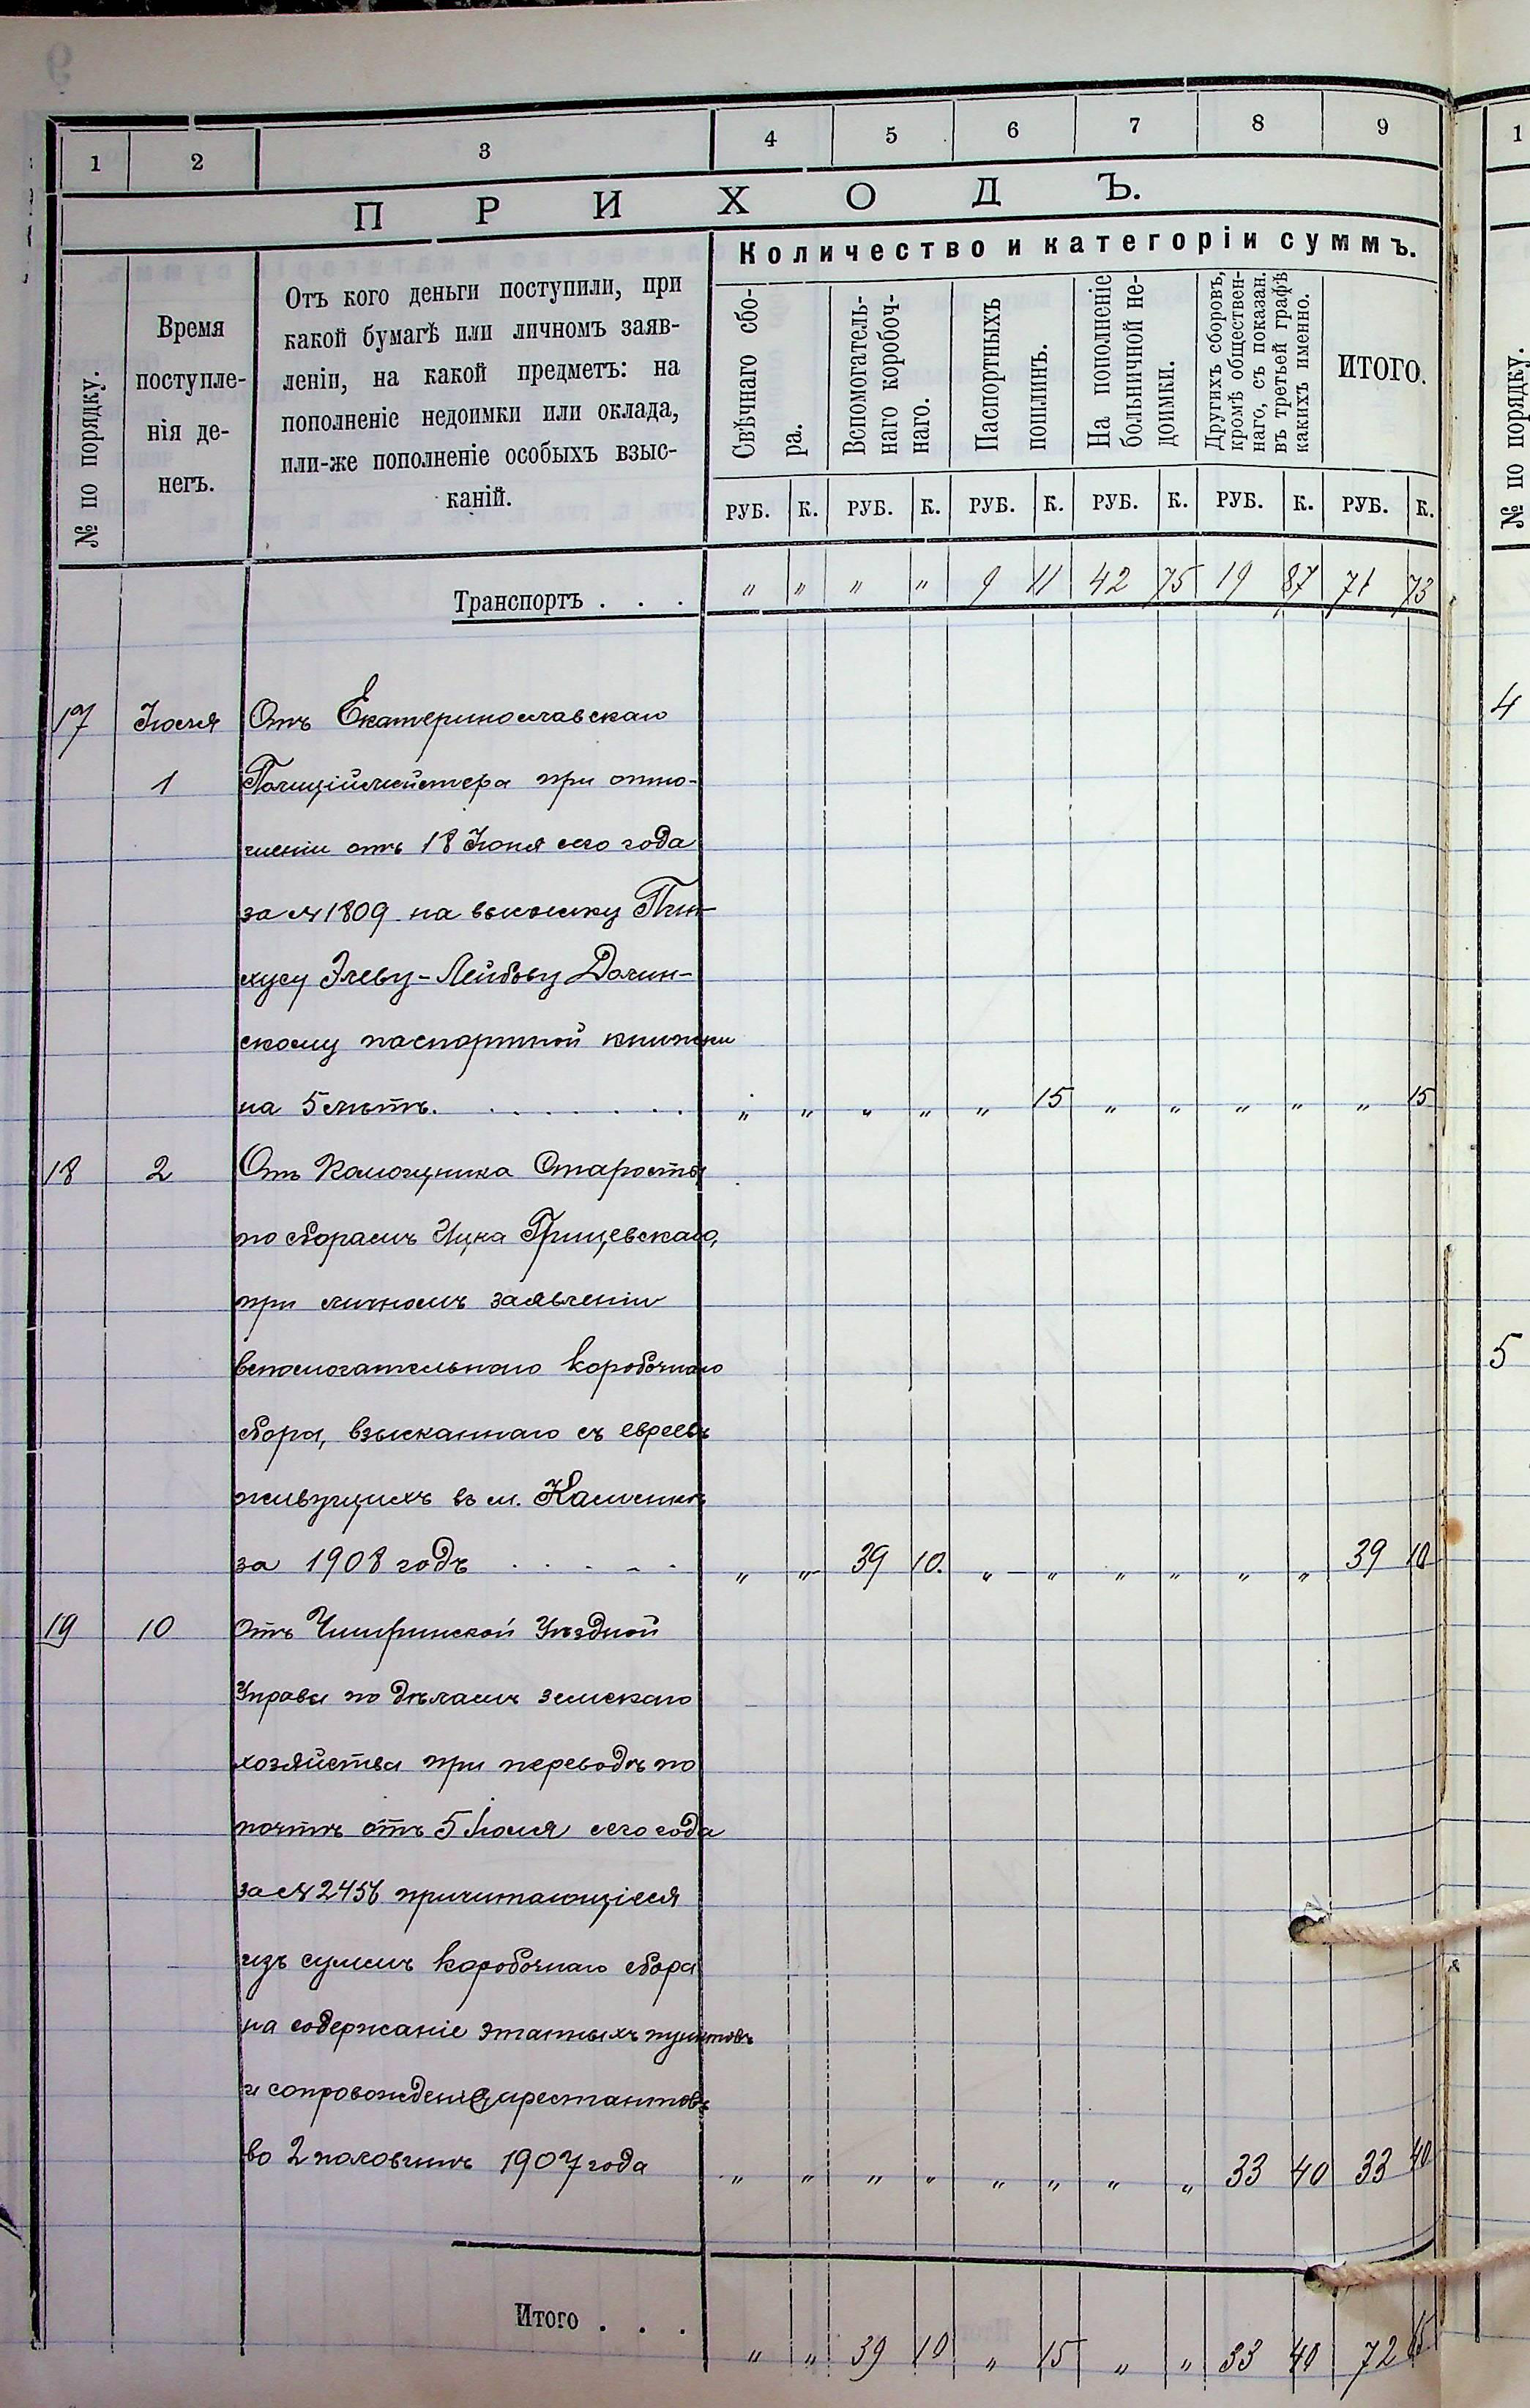 1 2 3 4 5 6 7 8 9
ПРИХОДЪ.
Количество и категоріи суммъ.
№ по порядку.
Время
поступле-
нія де-
негъ.
Отъ кого деньги поступили, при
какой бумагѣ или личномъ заяв-
леніи, на какой предметъ: на
пополненіе недоимки или оклада,
или-же пополненіе особыхъ взыс-
каній.
Свѣчнаго сбо-
ра.
Вспомогатель-
наго коробоч-
наго.
Паспортныхъ
поплинъ.
На пополненіе
больничной не-
доимки.
Другихъ сборовъ,
кромѣ обществен-
наго, съ показан.
въ третьей графѣ
какихъ именно.
ИТОГО.
РУБ. К. РУБ. К. РУБ. К. РУБ. К. РУБ. К. РУБ. К.
Транспортъ . . . " " " " 9 11 42 75 19 87 71 73
17 Іюля Отъ Екатеринославскаго
1 Полиціймейстера при отно-
шеніи отъ 18 Іюня сего года
за № 1809 на высылку Пин-
хусу Элеву-Лейбову Долин-
скому паспортной книжки
на 5 лѣтъ. . . . . . . . " " " " " 15 " " " " " 15
18 2 Отъ Помощника Старосты
по сборамъ Ицка Грищевскаго,
при личномъ заявленіи
вспомогательнаго коробочнаго
сбора, взысканнаго съ евреевъ
живущихъ въ м. Каменкѣ
за 1908 годъ . . . . . " " 39 10. " " " " " " 39 10
19 10 Отъ Чигиринской Уѣздной
Управы по дѣламъ земскаго
хозяйства при переводѣ по
почтѣ отъ 5 Іюля сего года
за № 2456 причитающіеся
изъ суммъ коробочнаго сбора
на содержаніе этапныхъ пунктовъ
и сопровожденія арестантовъ
во 2 половинѣ 1907 года " " " " " " " " 33 40 33 40
Итого . . . " " 39 10 " 15 " " 33 40 72 65
1
№ по порядку.
4
5